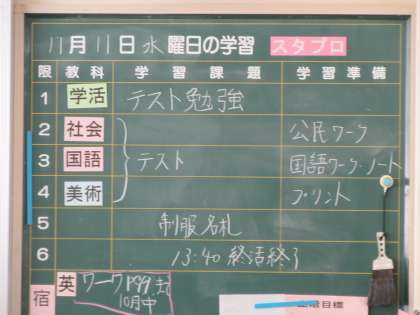 11月11日水曜日の学習 スタプロ
限 教科 学習課題 学習準備
1 学活 テスト勉強
2 社会 公民ワーク
3 国語 テスト 国語ワーク・ノート
4 美術 プリント
5 制服名札
6 13:40 終活終了
宿 英 ワーク P99まで
10月中